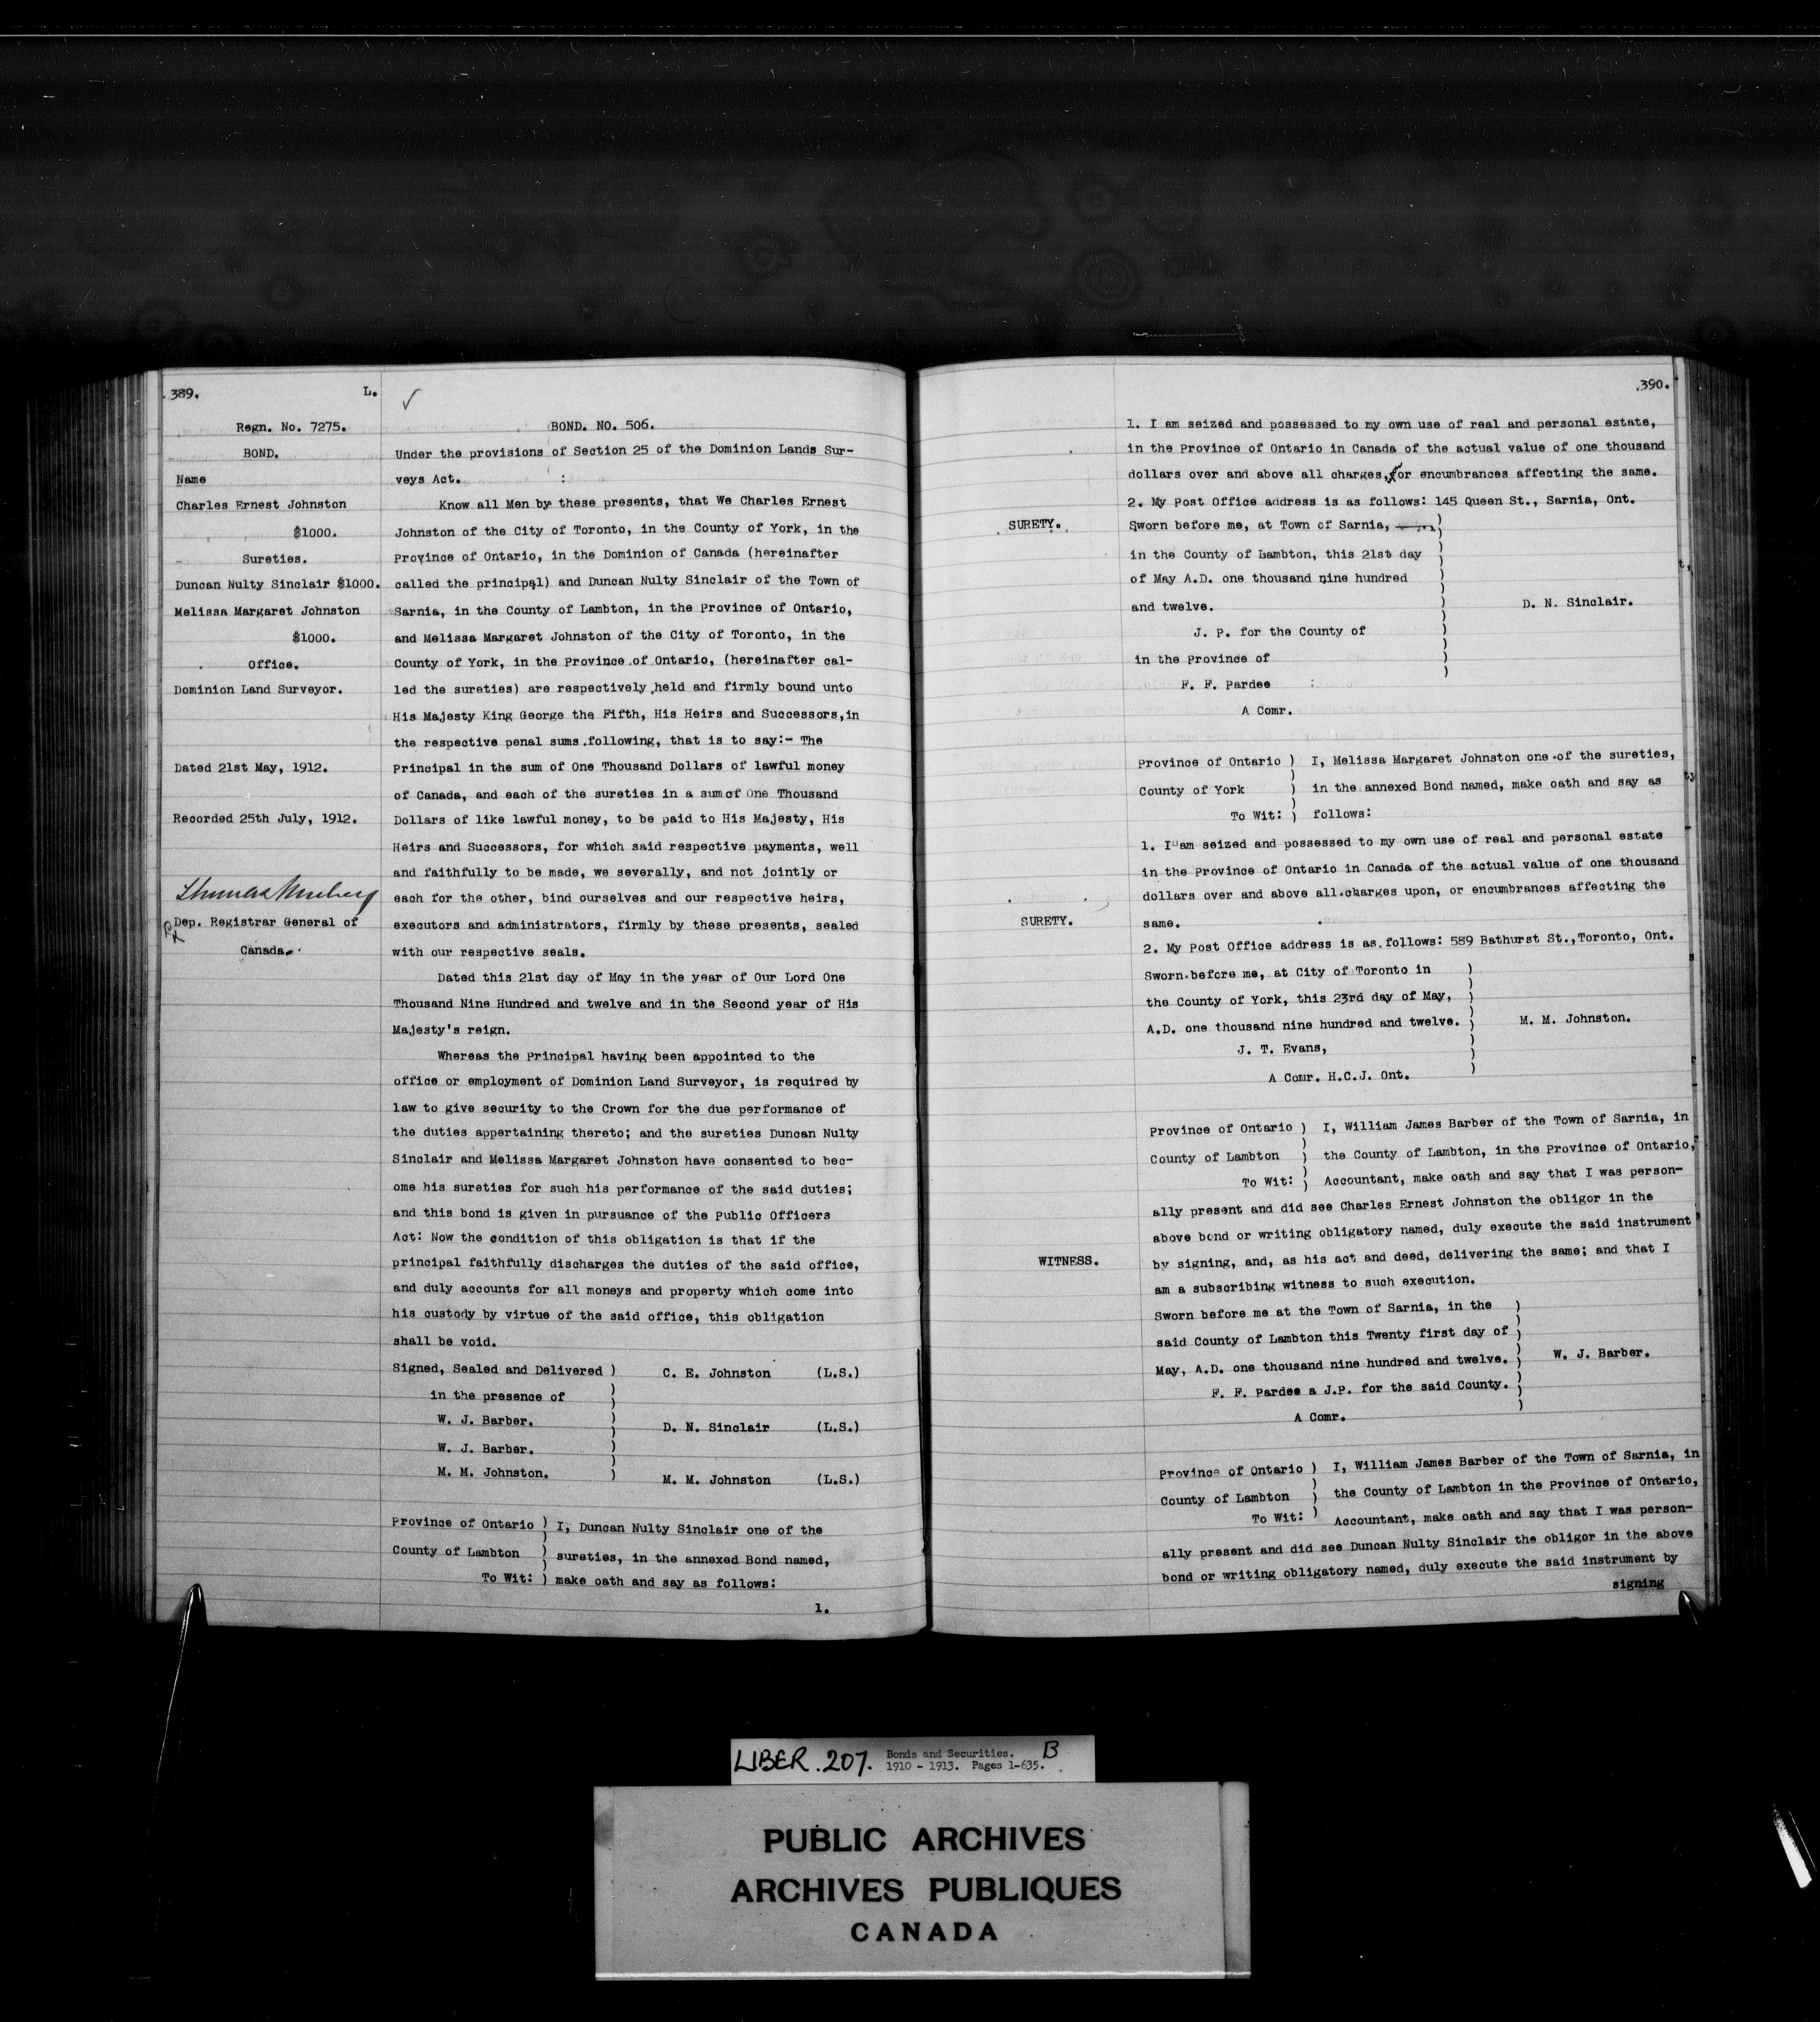 389.
L.
Regn. No. 7275.
BOND.
Name
Charles Ernest Johnston
$1000.
Sureties.
Duncan Nulty Sinclair $1000.
Melissa Margaret Johnston
$1000.
Office.
Dominion Land Surveyor.
Dated 21st May, 1912.
Recorded 25th July, 1912.
Dep. Registrar General of
Canada.
BOND. NO. 506.
Under the provisions of Section 25 of the Dominion Lands Sur-
veys Act.
Know all Men by these presents, that We Charles Ernest
Johnston of the City of Toronto, in the County of York, in the
Province of Ontario, in the Dominion of Canada (hereinafter
called the principal) and Duncan Nulty Sinclair of the Town of
Sarnia, in the County of Lambton, in the Province of Ontario,
and Melissa Margaret Johnston of the City of Toronto, in the
County of York, in the Province of Ontario, (hereinafter cal-
led the sureties) are respectively held and firmly bound unto
His Majesty King George the Fifth, His Heirs and Successors,in
the respective penal sums following, that is to say:- The
Principal in the sum of One Thousand Dollars of lawful money
of Canada, and each of the sureties in a sum of One Thousand
Dollars of like lawful money, to be paid to His Majesty, His
Heirs and Successors, for which said respective payments, well
and faithfully to be made, we severally, and not jointly or
each for the other, bind ourselves and our respective heirs,
executors and administrators, firmly by these presents, sealed
with our respective seals.
Dated this 21st day of May in the year of Our Lord One
Thousand Nine Hundred and twelve and in the Second year of His
Majesty's reign.
Whereas the Principal having been appointed to the
office or employment of Dominion Land Surveyor, is required by
law to give security to the Crown for the due performance of
the duties appertaining thereto; and the sureties Duncan Nulty
Sinclair and Melissa Margaret Johnston have consented to bec-
ome his sureties for such his performance of the said duties;
and this bond is given in pursuance of the Public Officers
Act: Now the condition of this obligation is that if the
principal faithfully discharges the duties of the said office,
and duly accounts for all moneys and property which come into
his custody by virtue of the said office, this obligation
shall be void.
Signed, Sealed and Delivered ) C. E. Johnston (L.S.)
in the presence of )
W. J. Barber. ) D. N. Sinclair (L.S.)
W. J. Barber. )
M. M. Johnston. ) M. M. Johnston (L.S.)
Province of Ontario ) I, Duncan Nulty Sinclair one of the
County of Lambton ) sureties, in the annexed Bond named,
To Wit: ) make oath and say as follows:
1.
390.
1. I am seized and possessed to my own use of real and personal estate,
in the Province of Ontario in Canada of the actual value of one thousand
dollars over and above all charges, or encumbrances affecting the same.
2. My Post Office address is as follows: 145 Queen St., Sarnia, Ont.
SURETY.
Sworn before me, at Town of Sarnia, )
in the County of Lambton, this 21st day )
of May A.D. one thousand nine hundred )
and twelve. ) D. N. Sinclair.
J. P. for the County of )
in the Province of )
F. F. Pardee
A Comr.
Province of Ontario ) I, Melissa Margaret Johnston one of the sureties,
County of York ) in the annexed Bond named, make oath and say as
To Wit: ) follows:
1. I am seized and possessed to my own use of real and personal estate
in the Province of Ontario in Canada of the actual value of one thousand
dollars over and above all charges upon, or encumbrances affecting the
SURETY.
same.
2. My Post Office address is as follows: 589 Bathurst St.,Toronto, Ont.
Sworn before me, at City of Toronto in )
the County of York, this 23rd day of May, )
A.D. one thousand nine hundred and twelve. ) M. M. Johnston.
J. T. Evans, )
A Comr. H.C.J. Ont. )
Province of Ontario ) I, William James Barber of the Town of Sarnia, in
County of Lambton ) the County of Lambton, in the Province of Ontario,
To Wit: ) Accountant, make oath and say that I was person-
ally present and did see Charles Ernest Johnston the obligor in the
above bond or writing obligatory named, duly execute the said instrument
WITNESS.
by signing, and, as his act and deed, delivering the same; and that I
am a subscribing witness to such execution.
Sworn before me at the Town of Sarnia, in the )
said County of Lambton this Twenty first day of )
May, A.D. one thousand nine hundred and twelve. ) W. J. Barber.
F. F. Pardee a J.P. for the said County. )
A Comr.
Province of Ontario ) I, William James Barber of the Town of Sarnia, in
County of Lambton ) the County of Lambton in the Province of Ontario,
To Wit: ) Accountant, make oath and say that I was person-
ally present and did see Duncan Nulty Sinclair the obligor in the above
bond or writing obligatory named, duly execute the said instrument by
signing
LIBER. 207. Bonds and Securities. B
1910 - 1913. Pages 1-635.
PUBLIC ARCHIVES
ARCHIVES PUBLIQUES
CANADA